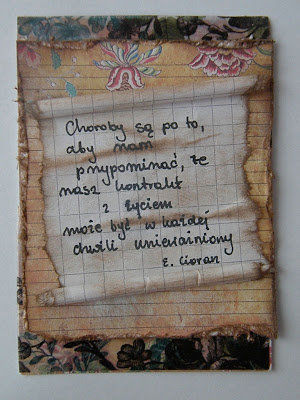 Choroby są po to,
aby nam
przypominać, że
nasz kontrakt
z życiem
może być w każdej
chwili unieważniony
E. Cioran